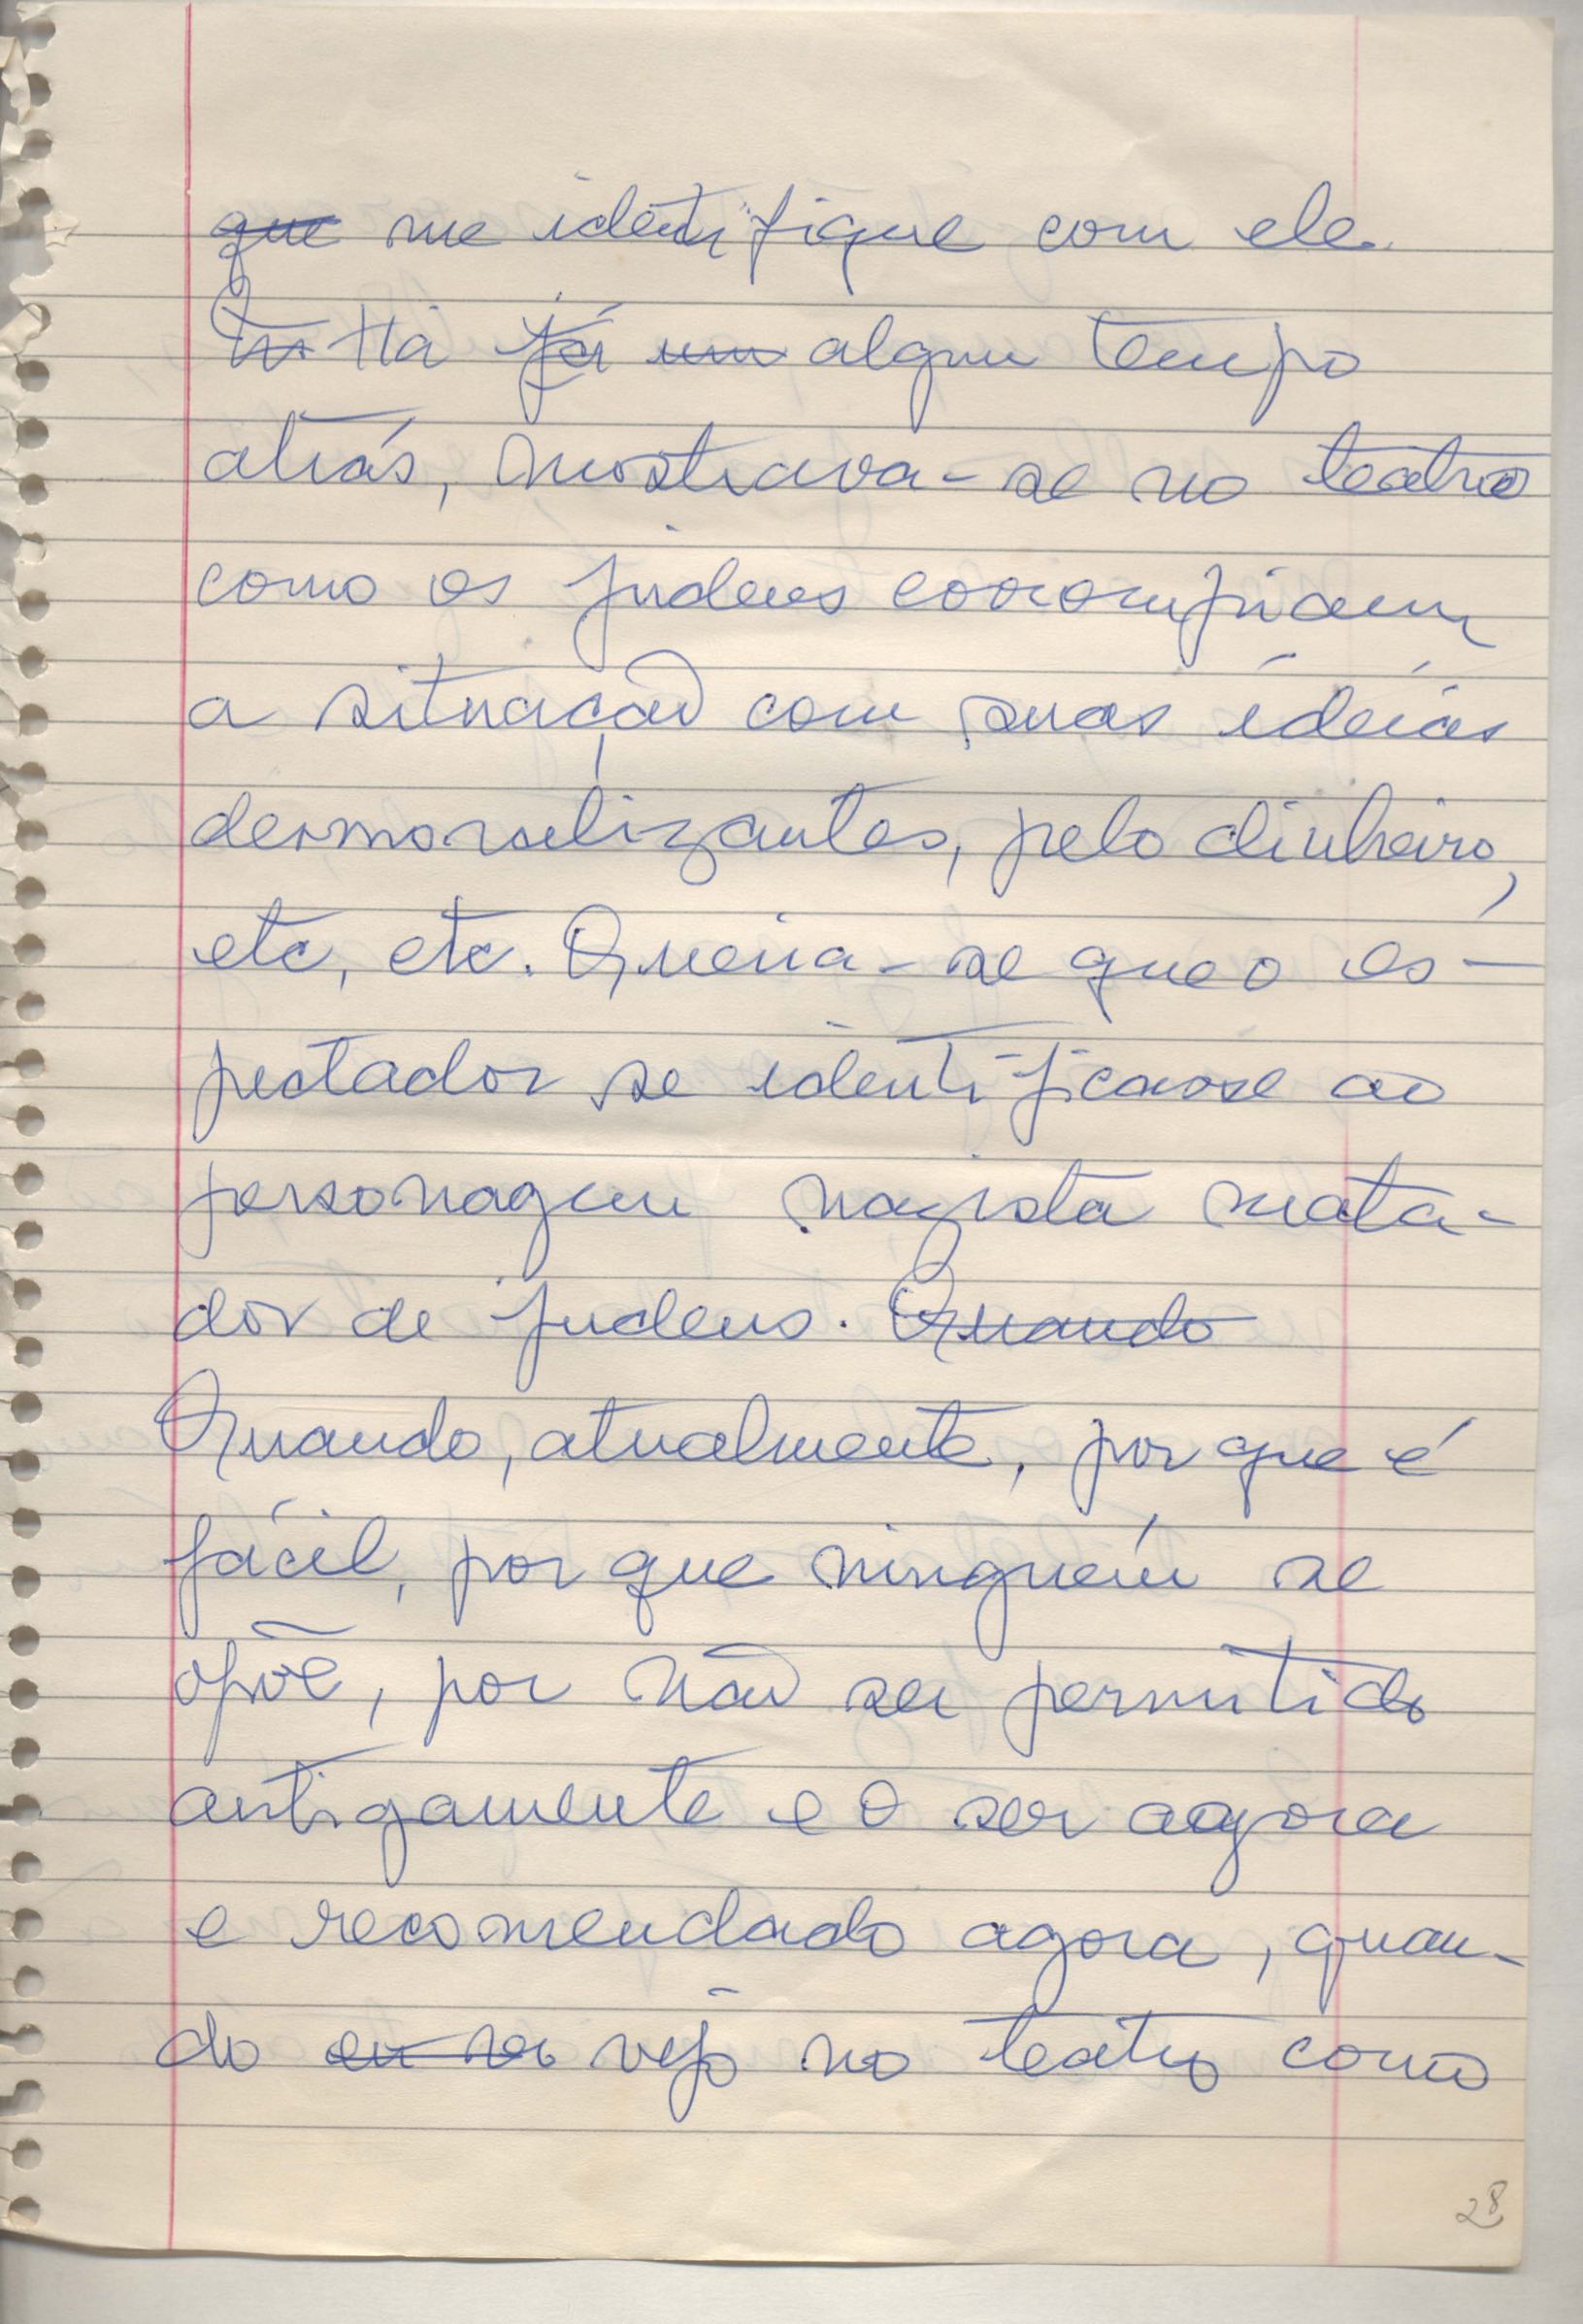 que me identifique com ele.
Há já um algum tempo
atrás, mostrava-se no teatro
como os judeus corrompiam
a situação com suas idéias
desmoralizantes, pelo dinheiro,
etc, etc. Queria-se que o es-
pectador se identificasse ao
personagem nazista mata-
dor de judeus. Quando
Quando, atualmente, por que é
fácil, por que ninguém se
opõe, por não ser permitido
antigamente e o ser agora
e recomendado agora, quan-
do eu ve vejo no teatro como
28